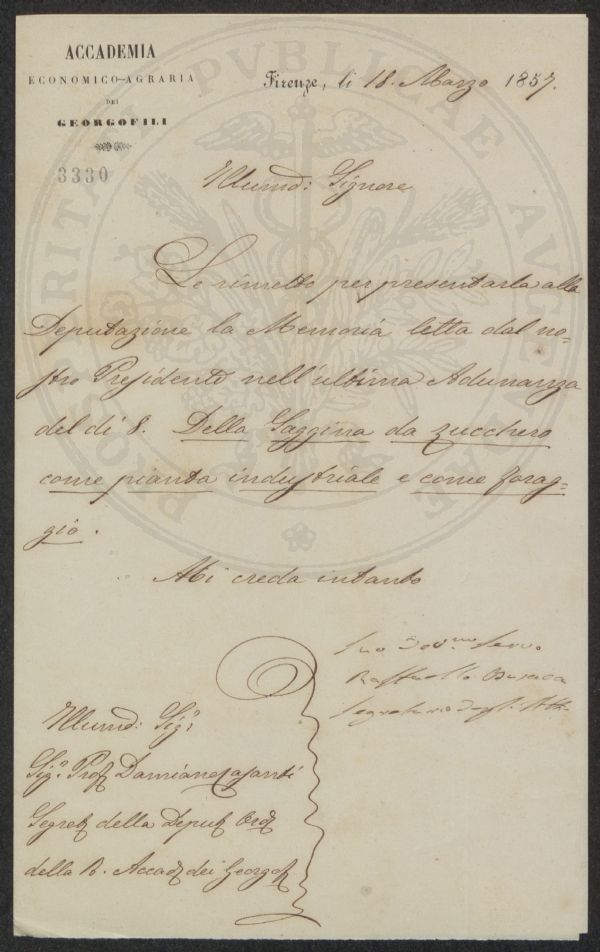 ACCADEMIA
ECONOMICO-AGRARIA
DEI
GEORGOFILI
3330
Firenze, li 18. Marzo 1857.
PROSPERITATI PVBLICAE AVGENDAE
Illumo: Signore
Le rimetto per presentarla alla
Deputazione la Memoria letta dal no=
stro Presidente nell'ultima Adunanza
del di 8. Della Saggina da zucchero
come pianta industriale e come forag=
gio.
Mi creda intanto
Suo Devmo Servo
Raffaello Busacca
Segretario degli Atti
Illumo: Sigr
Sigr Prof Damiano Casanti
Segret della Deput Ord
della R. Accad dei Georgof